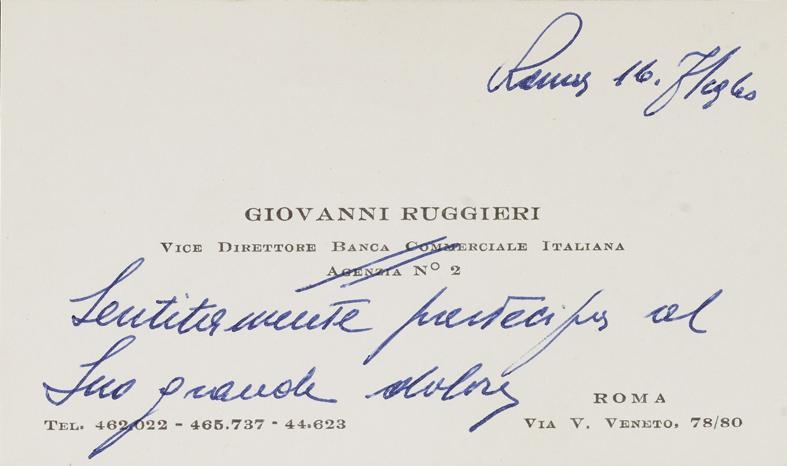 Roma 16. Luglio
GIOVANNI RUGGIERI
VICE DIRETTORE BANCA COMMERCIALE ITALIANA
AGENZIA Nº 2
Sentitamente partecipa al
Suo grande dolore
ROMA
TEL. 462.022 - 465.737 - 44.623
VIA V. VENETO, 78/80